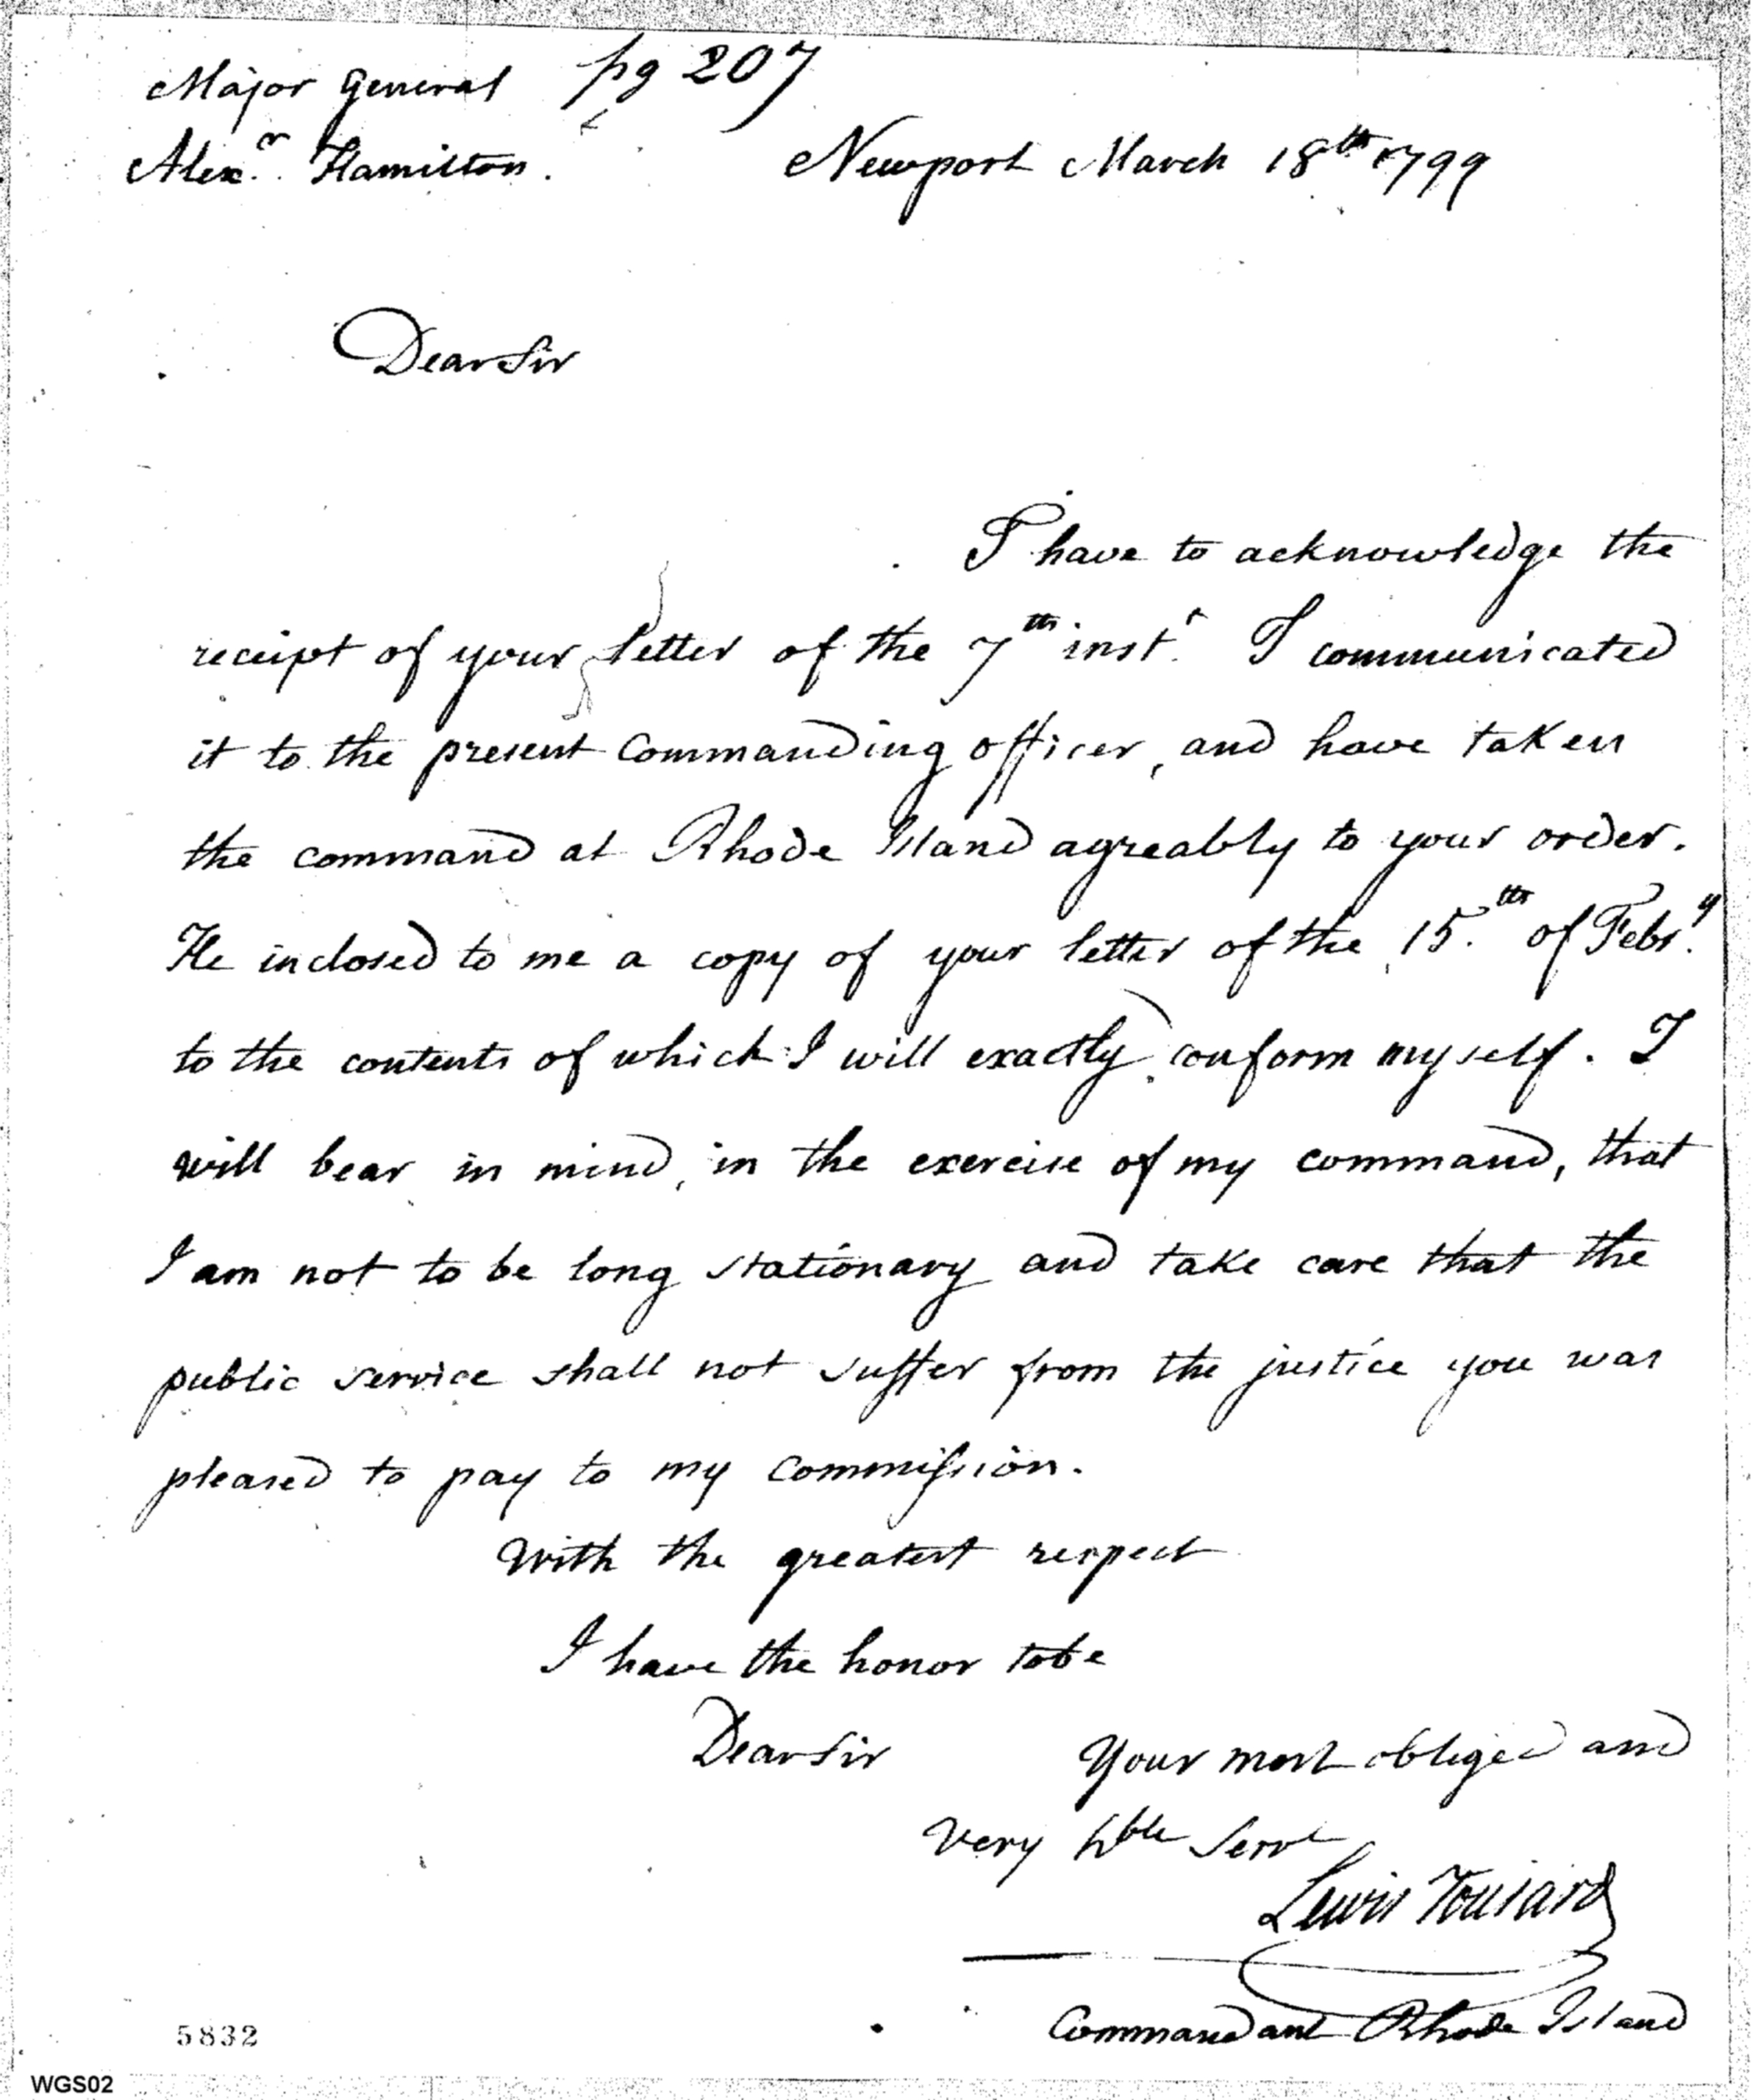 Major General pg 207
Alex.r Hamilton. Newport March 18th 1799
Dear Sir
I have to acknowledge the
receipt of your letter of the 7th inst.t I communicated
it to the present Commanding officer, and have taken
the command at Rhode Island agreably to your order.
He inclosed to me a copy of your letter of the 15.th of Febr.y
to the contents of which I will exactly conform myself. I
will bear in mind, in the exercise of my command, that
I am not to be long stationary and take care that the
public service shall not suffer from the justice you was
pleased to pay to my Commission.
With the greatest respect
I have the honor to be
Dear Sir Your most obliged and
very hble Servt
Lewis Tousard
Commandant Rhode Island
5832
WGS02